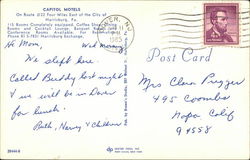 CAPITOL MOTELS
On Route #22 Four Miles East of the City
Harrisburg, Pa.
115 Rooms Completely equipped, Coffee Shop
Rooms and Cocktail Lounge, Banquet
Conference Rooms Available. For Reservations
Phone Harrisburg Exchange.
Hi Mom, Wed
We slept here.
Called Buddy last night
& we will be in Dover
for lunch.
Ruth, Harry & Children
Post Card
Mrs Clara
495 Coombs
Napa Calif
94558